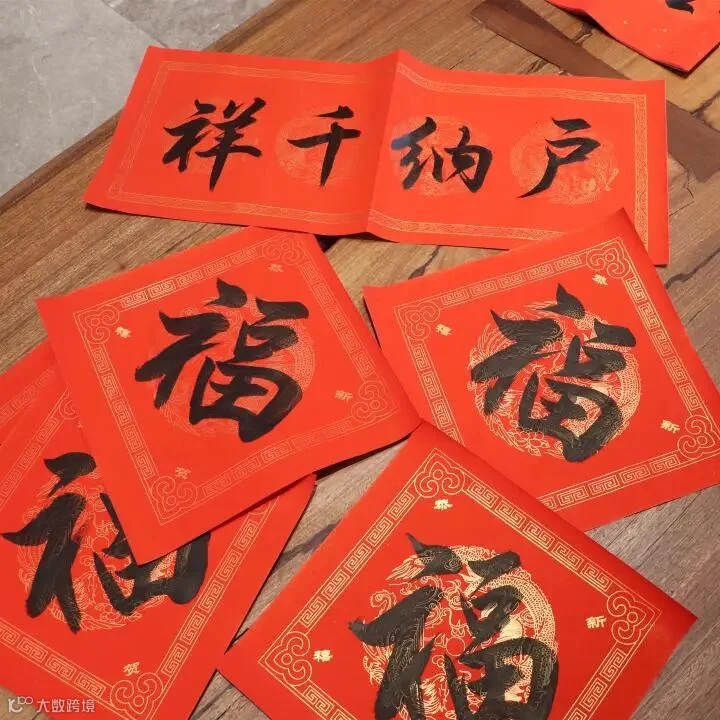 户纳千祥
福
恭
贺
新
禧
福
恭
新
禧
福
贺
福
恭
新
禧
大数跨境